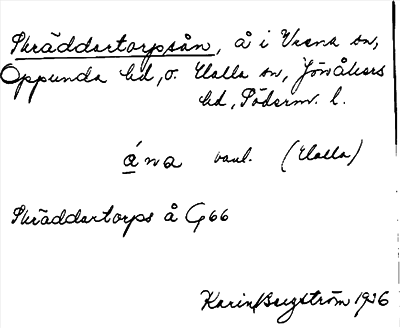 Skräddartorpsån, å i Vrena sn,
Oppunda hd, o. Halla sn, Jönåkers
hd, Söderm. l.
ǻna vanl. (Halla)
Skräddartorps å G66
Karin Bergström 1936